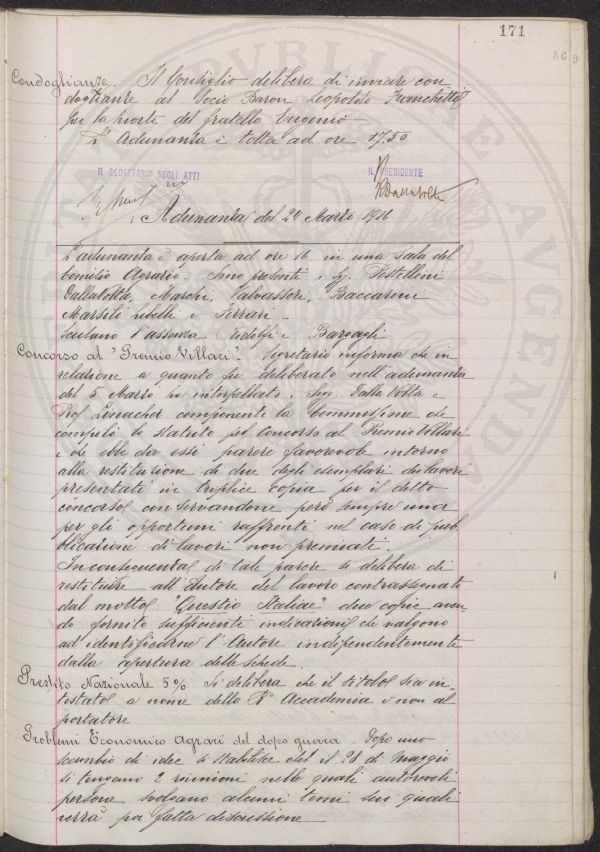 171
Condoglianze. Il Consiglio delibera di inviare con
doglianze al Socio Baron Leopoldo Franchetti
per la morte del fratello Eugenio
L'Adunanza è tolta ad ore 17,50
IL SEGRETARIO DEGLI ATTI
IL PRESIDENTE
Adunanza del 29 Marzo 1916
L'adunanza è aperta ad ore 16 in una sala del
Comizio Agrario. Sono presenti i Sig. Pestellini
Dallavolta, Marchi, Valvassori, Baccarini
Marsili Libelli e Ferrari.
Scusano l'assenza Ridolfi e Bargagli
Concorso al "Premio Villari". Segretario informa che in
relazione a quanto fu deliberato nell'adunanza
del 5 Marzo ha interpellato i Sigg. Dalla Volta e
Prof componenti la Commissione che
compilò lo statuto pel Concorso al Premio Villari
e che ebbe da essi parere favorevole intorno
alla restituzione di due degli esemplari dei lavori
presentati in triplice copia per il detto
concorso conservandone però sempre una
per gli opportuni raffronti nel caso di pub
blicazione di lavori non premiati.
In conseguenza di tale parere si delibera di
restituire all'Autore del lavoro contrassegnato
dal motto "Questio Italiae" due copie aven
do fornito sufficienti indicazioni che valgono
ad identificarne l'Autore indipendentemente
dalla apertura delle schede.
Prestito Nazionale 5% Si delibera che il titolo sia in
testato a nome della R. Accademia e non al
portatore
Problemi Economico Agrari del dopo guerra. Dopo uno
scambio di idee si stabilisce che il 28 di Maggio
si tengano 2 riunioni nelle quali autorevoli
persone svolgano alcuni temi sui quali
verrà poi fatta discussione